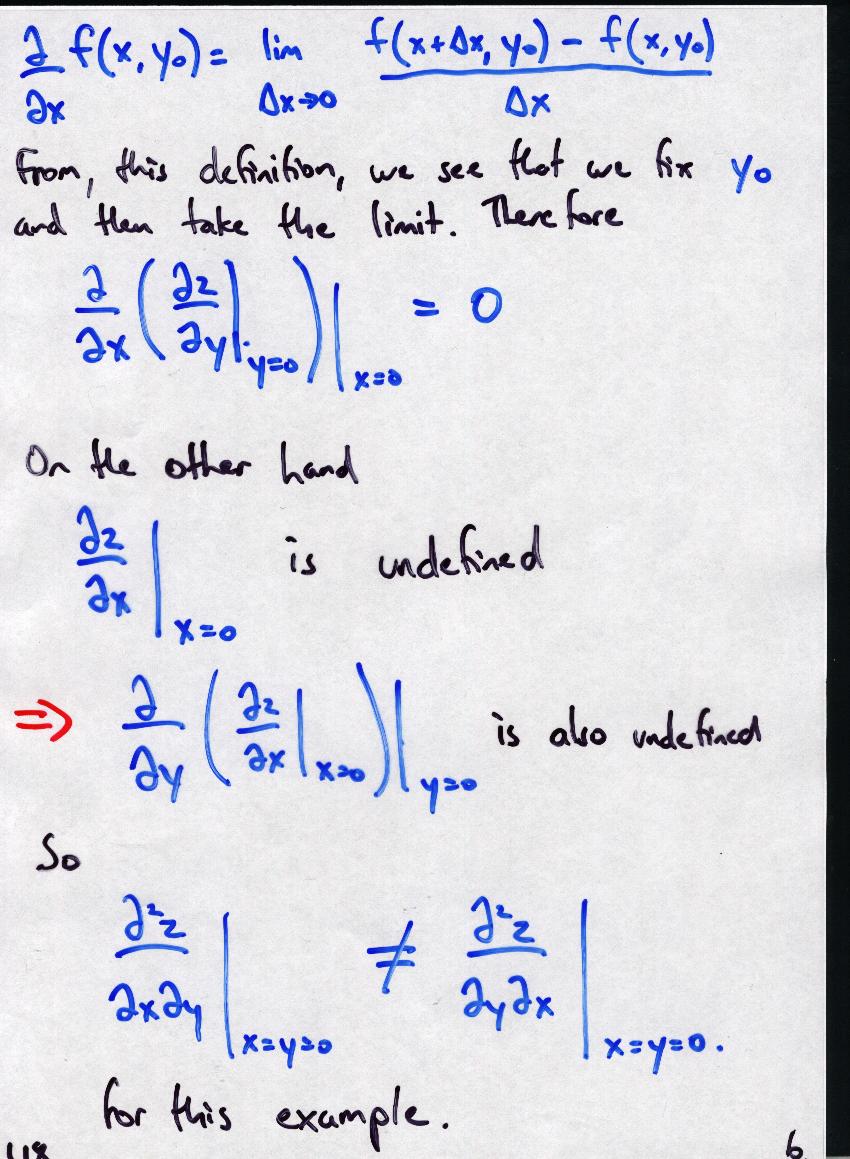 ∂/∂x f(x, y₀) = lim Δx→0 (f(x+Δx, y₀) − f(x, y₀))/Δx
From, this definition, we see that we fix y₀
and then take the limit. Therefore
∂/∂x (∂z/∂y |y=0) |x=0 = 0
On the other hand
∂z/∂x |x=0 is undefined
⇒ ∂/∂y (∂z/∂x |x=0) |y=0 is also undefined
So
∂²z/∂x∂y |x=y=0 ≠ ∂²z/∂y∂x |x=y=0.
for this example.
6